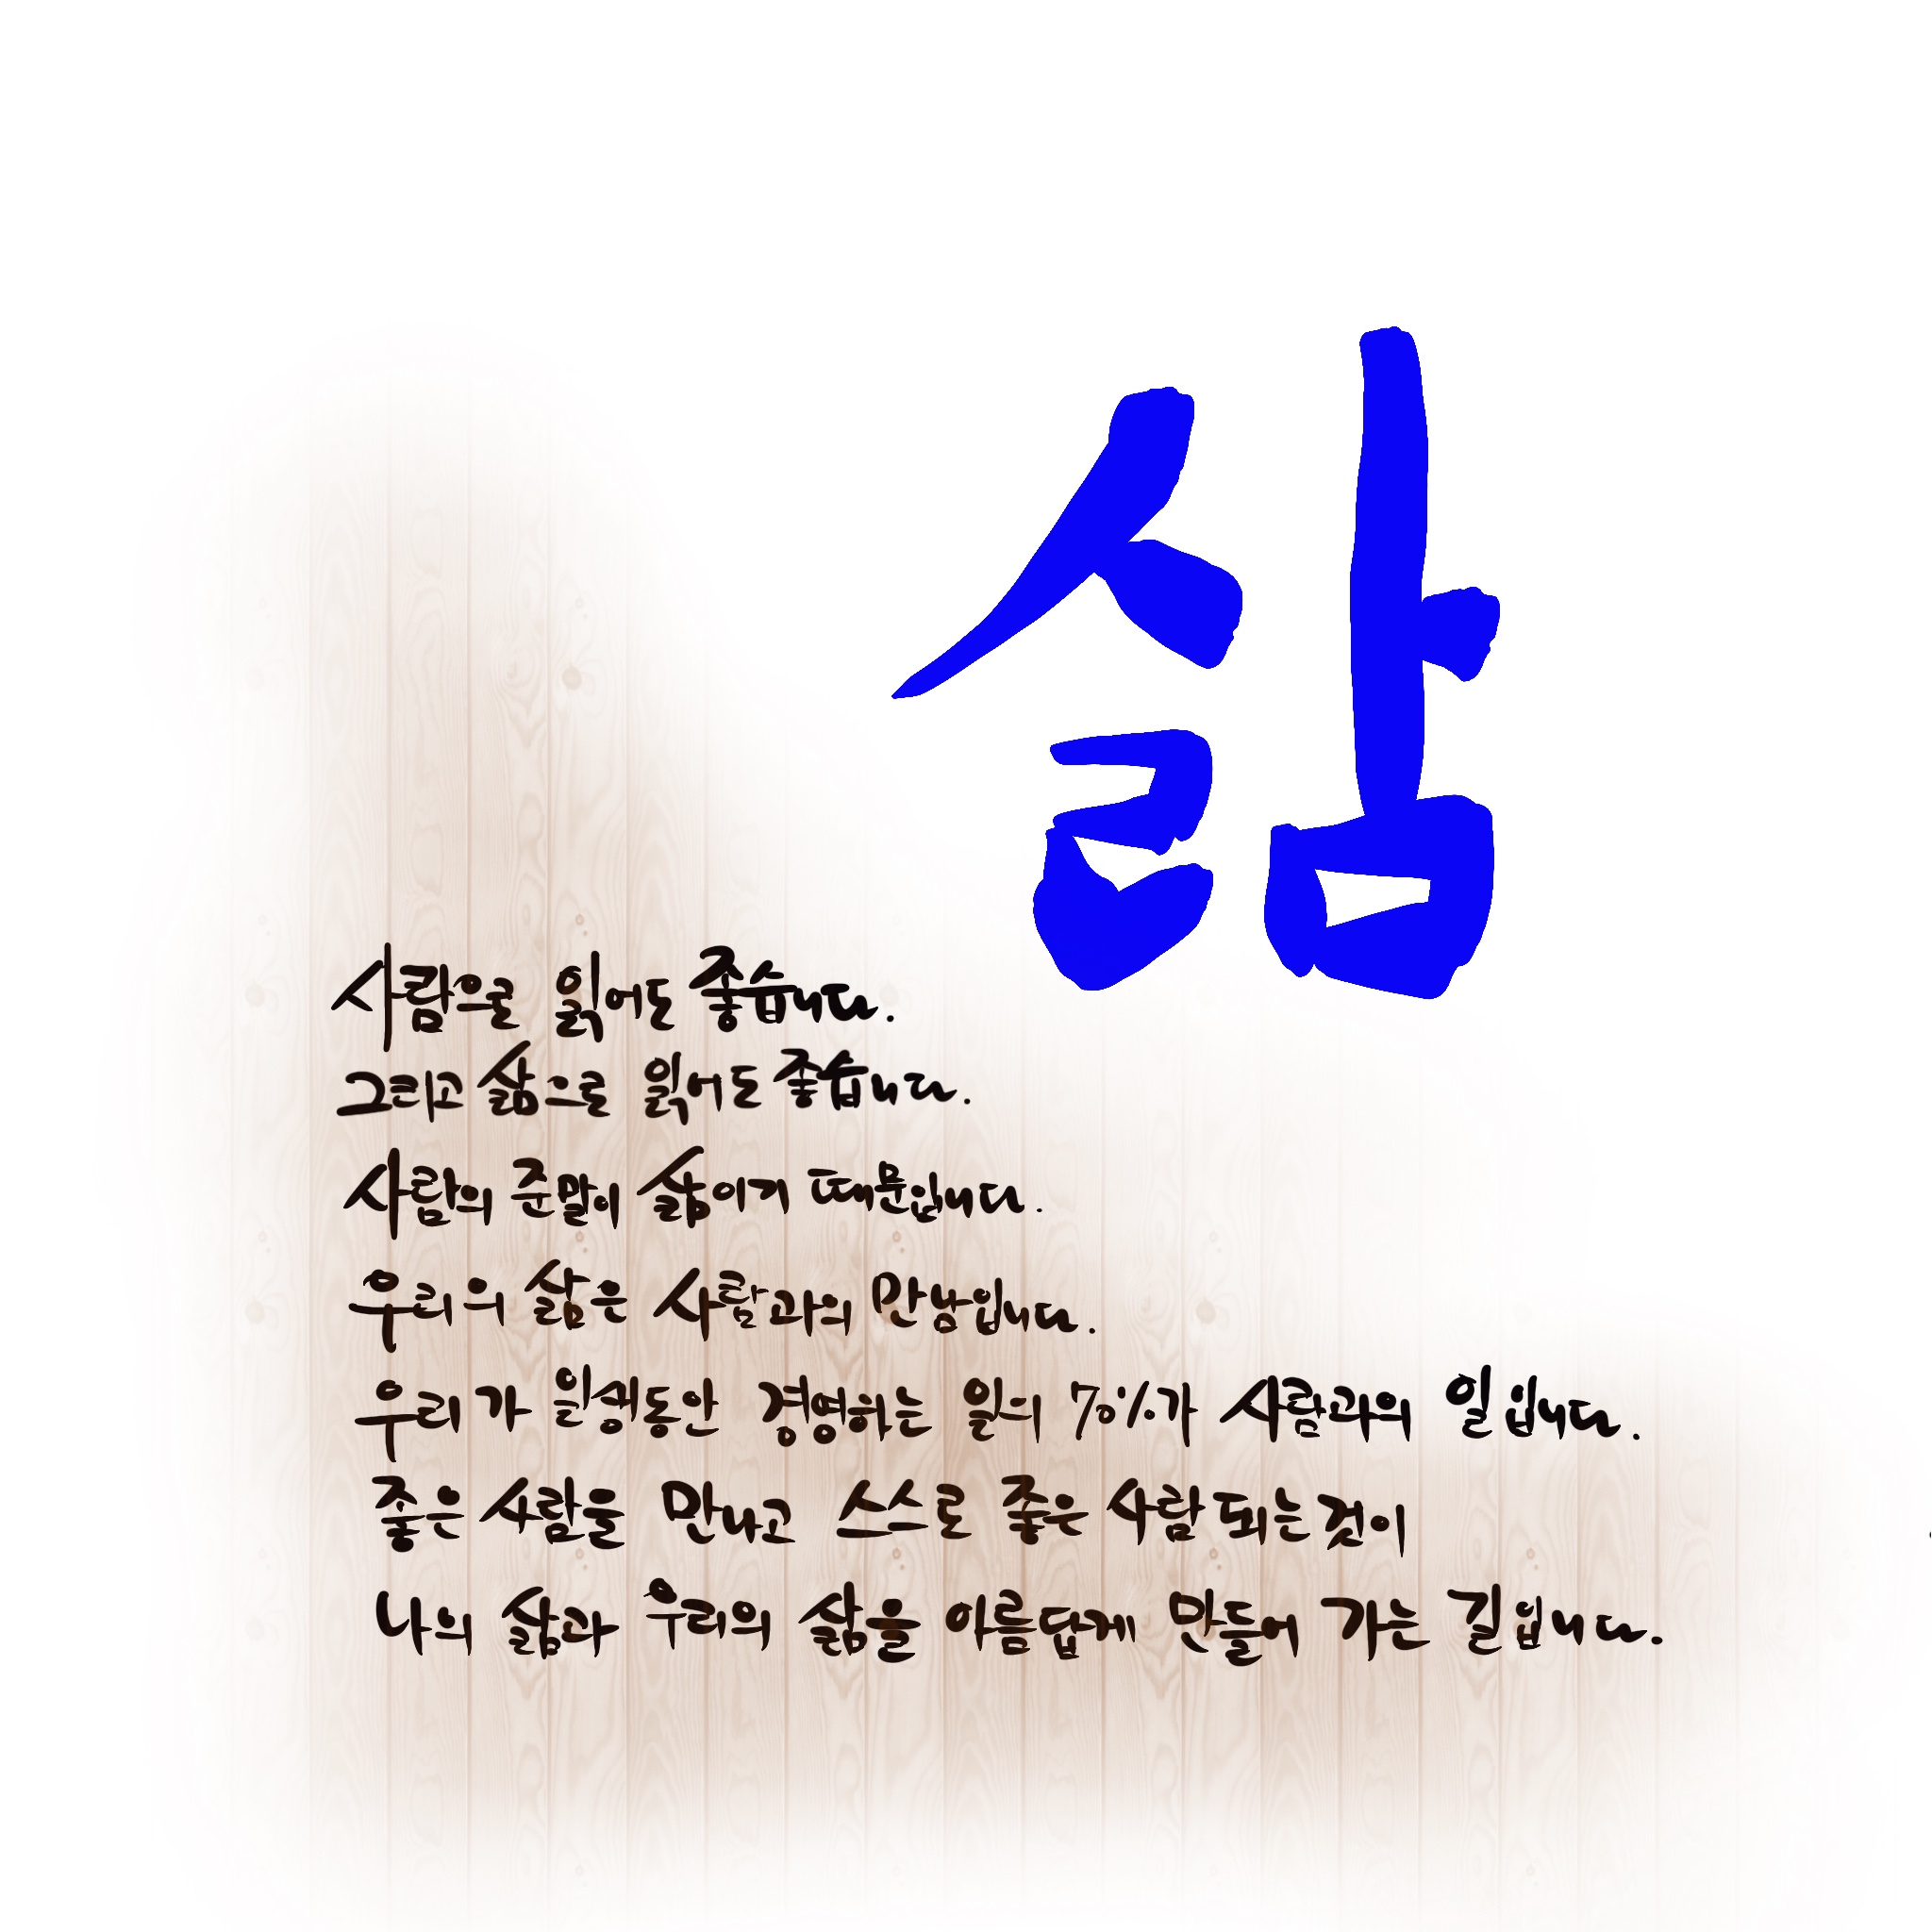 삶
사람으로 읽어도 좋습니다.
그리고 삶으로 읽어도 좋습니다.
사람의 준말이 삶이기 때문입니다.
우리의 삶은 사람과의 만남입니다.
우리가 일생동안 경영하는 일의 70%가 사람과의 일입니다.
좋은 사람을 만나고 스스로 좋은 사람 되는것이
나의 삶과 우리의 삶을 아름답게 만들어 가는 길입니다.